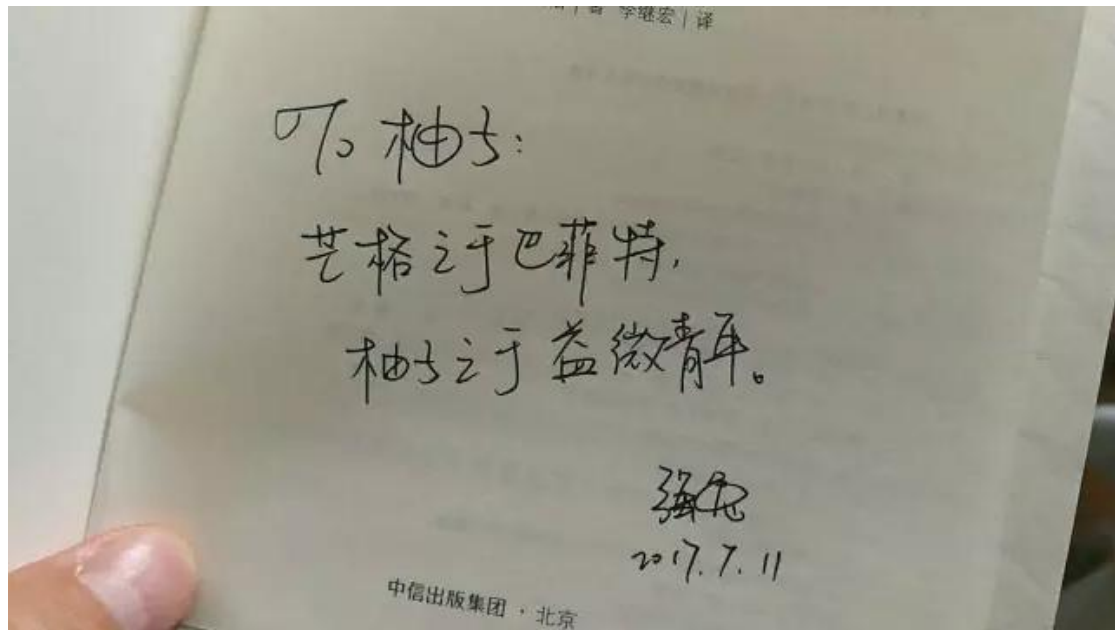 著 李继宏｜译
To 柚子:
芒格之于巴菲特,
柚子之于益微青年。
2017.7.11
中信出版集团·北京